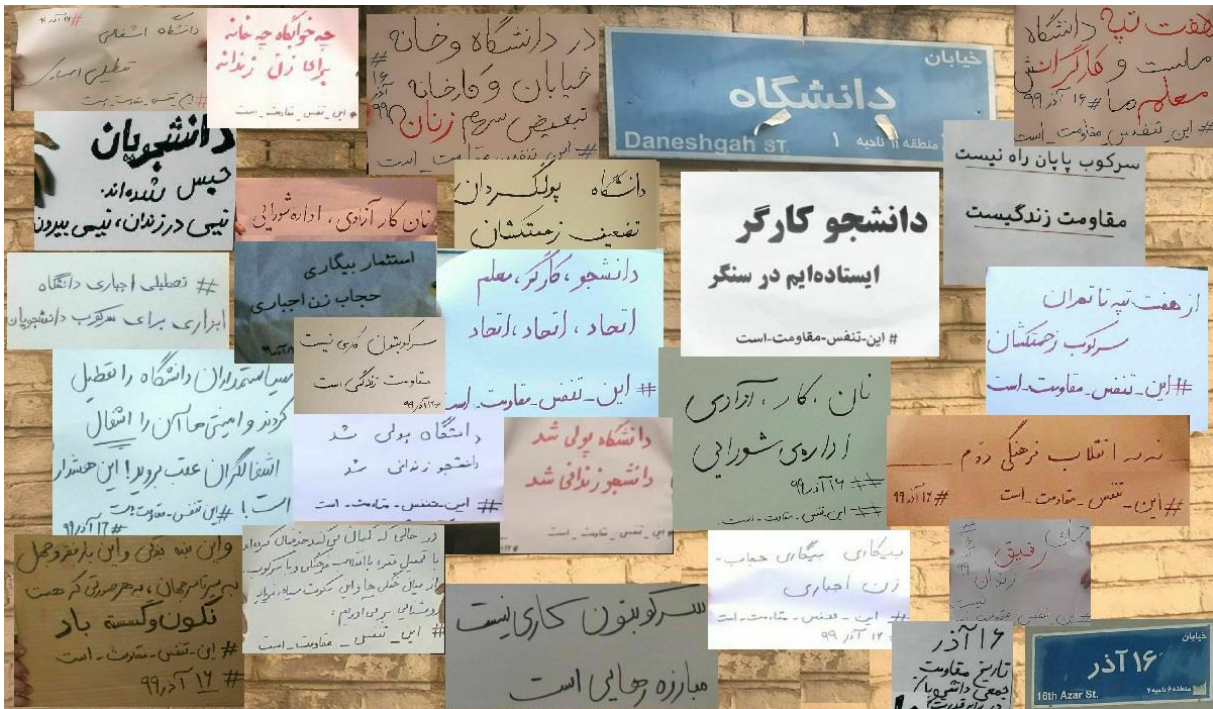 #۱۶ آذر ۹۹
دانشگاه اشغالی
تعطیلی اجباری
#این_تنفس_مقاومت_است
چه خوابگاه چه خانه
برای زن زندانه
#این_تنفس_مقاومت_است
در دانشگاه و خانه
خیابان و کارخانه
تبعیض سهم زنان
#۱۶ آذر ۹۹
#این_تنفس_مقاومت_است
خیابان
دانشگاه
Daneshgah ST.
منطقه ۱۱ ناحیه ۱
هفت تپه دانشگاه
ماست و کارگرانش
معلم ما #۱۶ آذر ۹۹
#این_تنفس_مقاومت_است
دانشجویان
حبس شده‌اند:
نیمی در زندان، نیمی بیرون
نان کار آزادی، اداره شورایی
دانشگاه پولگردان
تضعیف زحمتکشان
دانشجو کارگر
ایستاده‌ایم در سنگر
#این-تنفس-مقاومت-است
سرکوب پایان راه نیست
مقاومت زندگیست
# تعطیلی اجباری دانشگاه
ابزاری برای سرکوب دانشجویان
استثمار بیگاری
حجاب زن اجباری
۱۶ آذر ۹۹
سرکوبتون کاری نیست
مقاومت زندگی است
#۱۶ آذر ۹۹
دانشجو، کارگر، معلم
اتحاد، اتحاد، اتحاد
#این_تنفس_مقاومت_است
از هفت تپه تا تهران
سرکوب زحمتکشان
#این_تنفس_مقاومت_است
سیاستمداران دانشگاه را تعطیل
کردند و امنیتی‌ها آن را اشغال
اشغالگران عقب بروید! این هشدار
است! #این_تنفس_مقاومت_است
#۱۶ آذر ۹۹
دانشگاه پولی شد
دانشجو زندانی شد
#این_تنفس_مقاومت_است
دانشگاه پولی شد
دانشجو زندانی شد
#این_تنفس_مقاومت_است
نان، کار، آزادی
اداره‌ی شورایی
#۱۶ آذر ۹۹
#این_تنفس_مقاومت_است
نه به انقلاب فرهنگی دوم
#این_تنفس_مقاومت_است #۱۶ آذر ۹۹
واین بند بندگی و این بار فقر و جهل
به سرتاسر جهان، به هر صورتی که هست
نگون و گسسته باد
#این_تنفس_مقاومت_است
#۱۶ آذر ۹۹
در حالی که گمان می‌کنند
با تحمیل فقر، با انقلاب فرهنگی و با سرکوب
از میان
#این_تنفس_مقاومت_است
سرکوبتون کاری نیست
مبارزه رهایی است
بیگاری حجاب
زن اجباری
#این_تنفس_مقاومت_است
#۱۶ آذر ۹۹
جای
رفیق
زندان
نیست
#این_تنفس_مقاومت_است
۱۶ آذر
تاریخ مقاومت
جمعی
خیابان
۱۶ آذر
16th Azar St.
منطقه ۶ ناحیه ۲